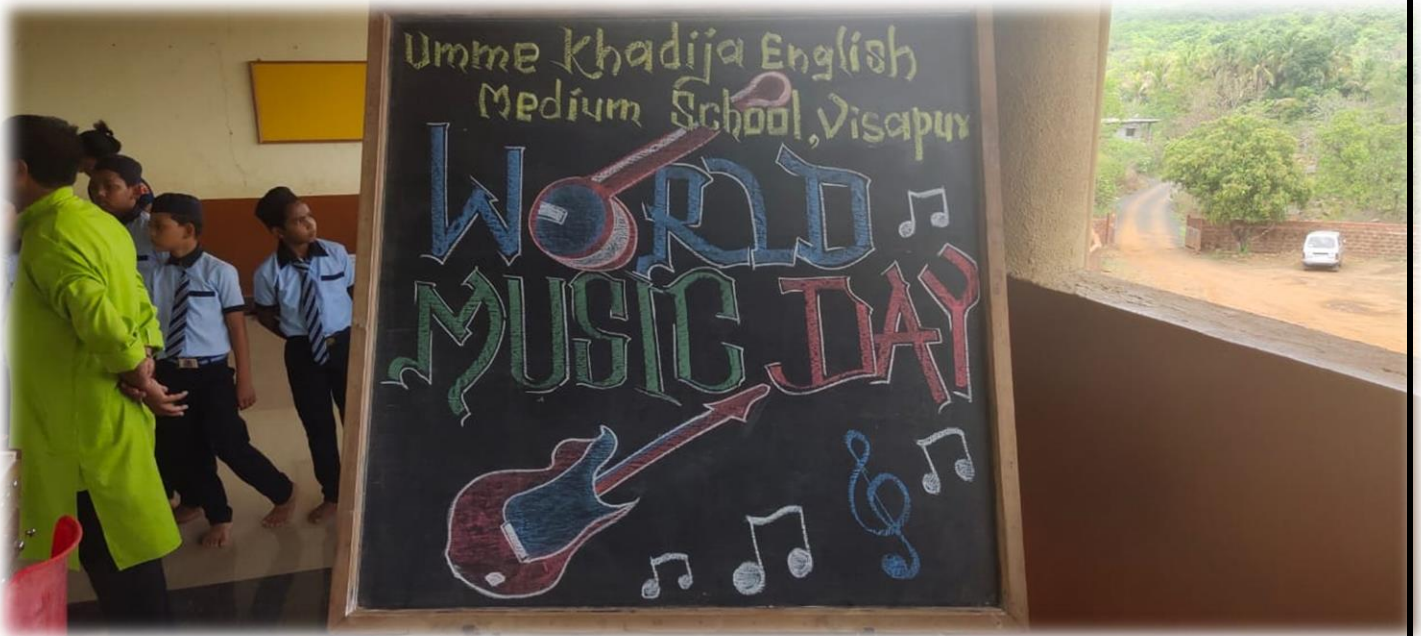 Umme Khadija English
Medium School, Visapur
WORLD
MUSIC DAY